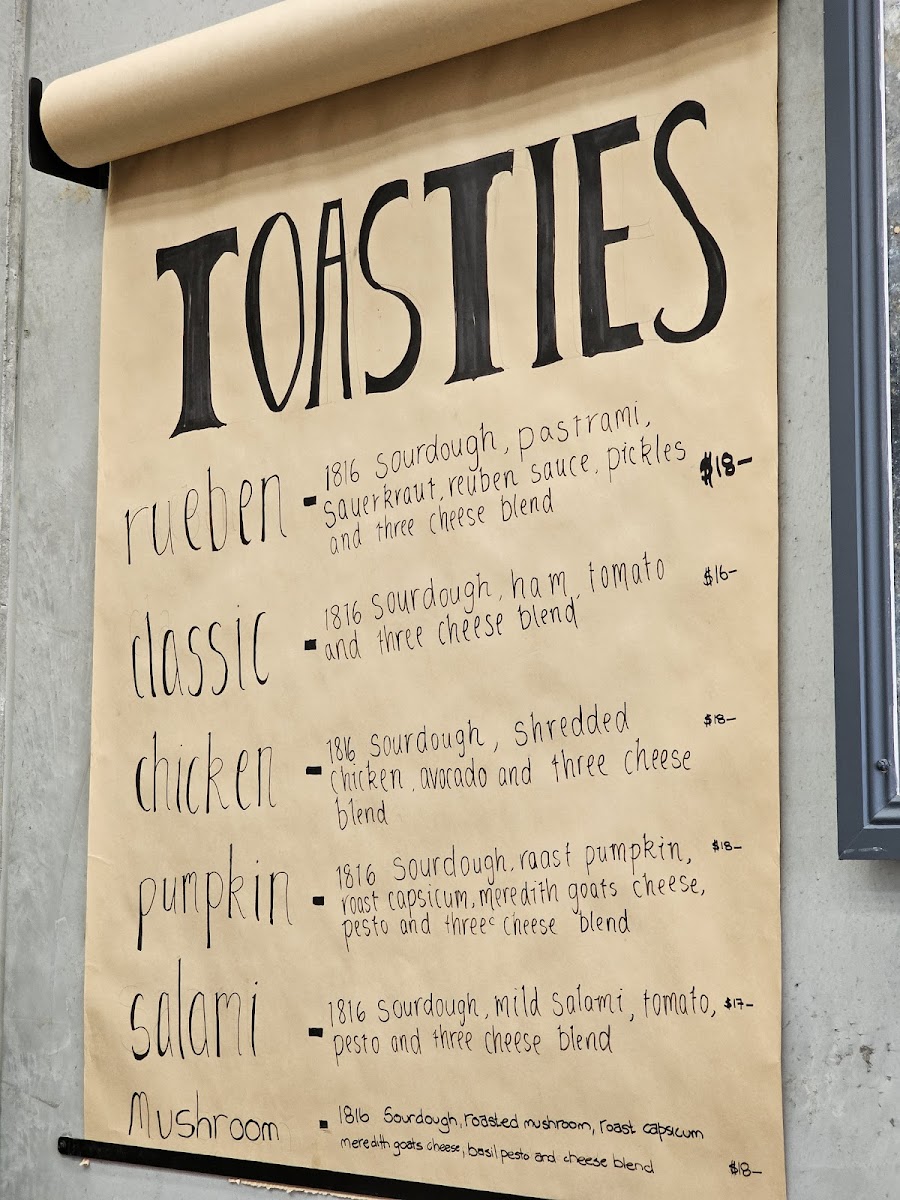 TOASTIES
rueben - 1816 sourdough, pastrami,
sauerkraut, reuben sauce, pickles $18-
and three cheese blend
classic - 1816 sourdough, ham, tomato $16-
and three cheese blend
chicken - 1816 sourdough, shredded $18-
chicken, avocado and three cheese
blend
pumpkin - 1816 sourdough, roast pumpkin, $18-
roast capsicum, meredith goats cheese,
pesto and three cheese blend
salami - 1816 sourdough, mild salami, tomato, $17-
pesto and three cheese blend
Mushroom - 1816 Sourdough, roasted mushroom, roast capsicum
meredith goats cheese, basil pesto and cheese blend $18-